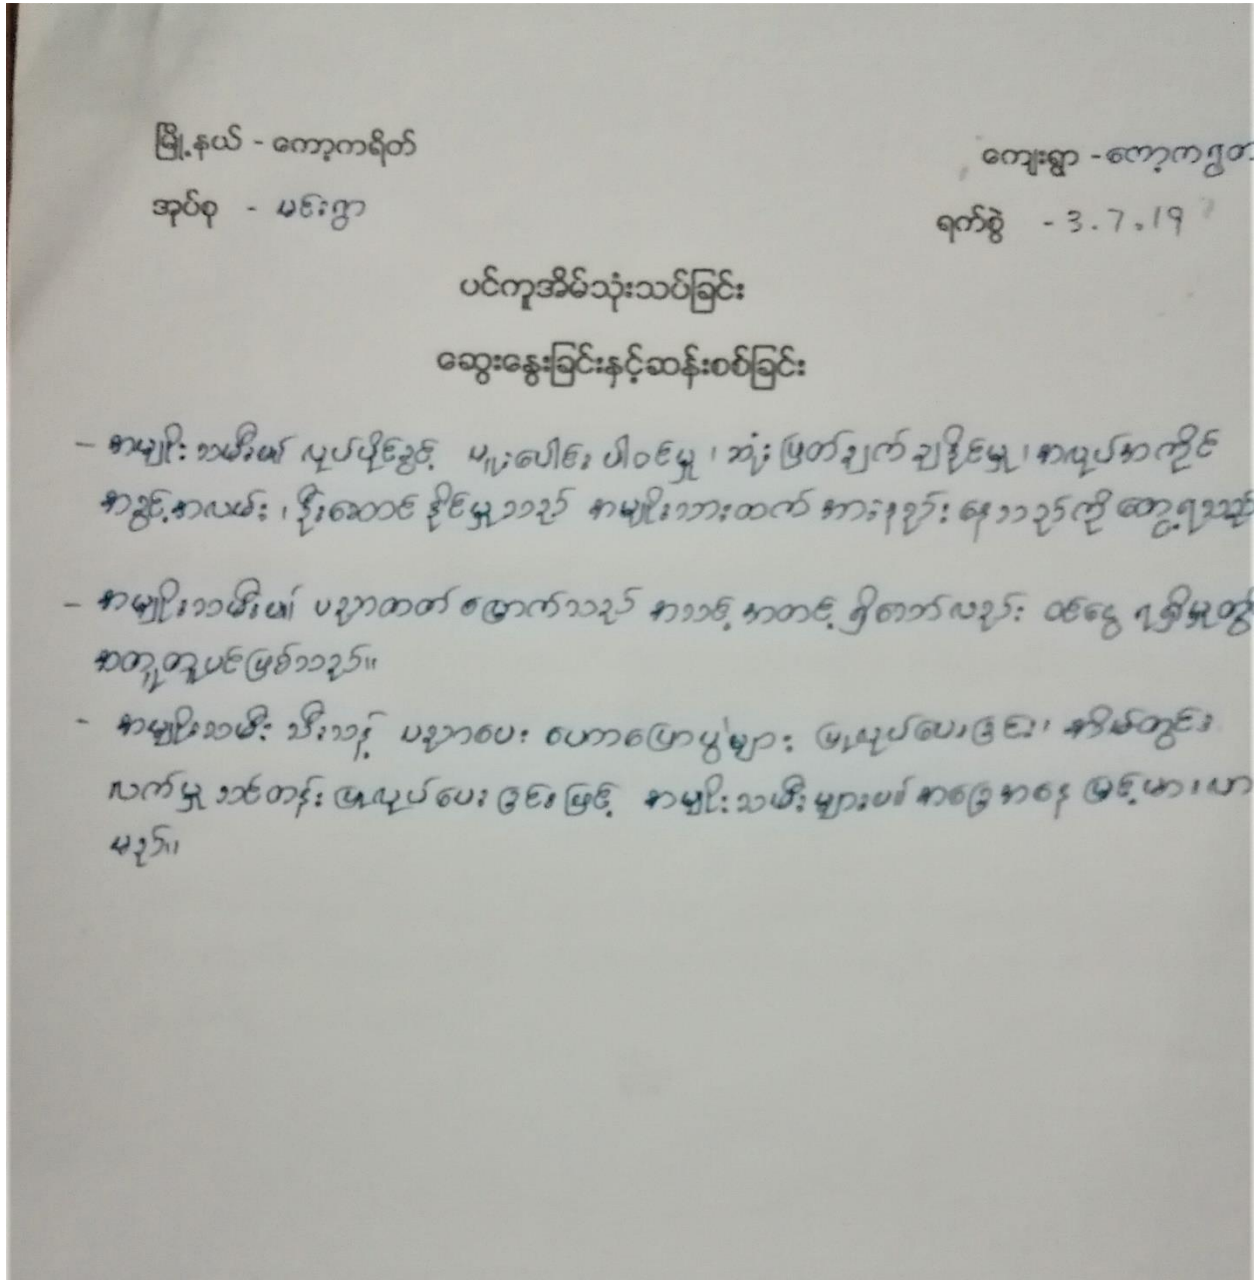 မြို့နယ် - ကော့ကရိတ်
ကျေးရွာ - ကော့ကရိတ်
အုပ်စု - မင်းရွာ
ရက်စွဲ - 3.7.19
ပင်ကူအိမ်သုံးသပ်ခြင်း
ဆွေးနွေးခြင်းနှင့်ဆန်းစစ်ခြင်း
- အမျိုးသမီး၏ လုပ်ပိုင်ခွင့် ပူးပေါင်းပါဝင်မှု၊ ဆုံးဖြတ်ချက်ချနိုင်မှု၊ အလုပ်အကိုင်
အခွင့်အလမ်း၊ ဦးဆောင်နိုင်မှုသည် အမျိုးသားထက် အားနည်းနေသည်ကို တွေ့ရသည်
- အမျိုးသမီး၏ ပညာတတ်မြောက်သည် အသင့်အတင့် ရှိသော်လည်း ဝင်ငွေ ရရှိမှုတွင်
အတူတူပင်ဖြစ်သည်။
- အမျိုးသမီး သီးသန့် ပညာပေး ဟောပြောပွဲများ ပြုလုပ်ပေးခြင်း၊ အိမ်တွင်း
လက်မှု သင်တန်း ပြုလုပ်ပေးခြင်းဖြင့် အမျိုးသမီးများ၏ အခြေအနေ မြင့်မားလာ
မည်။